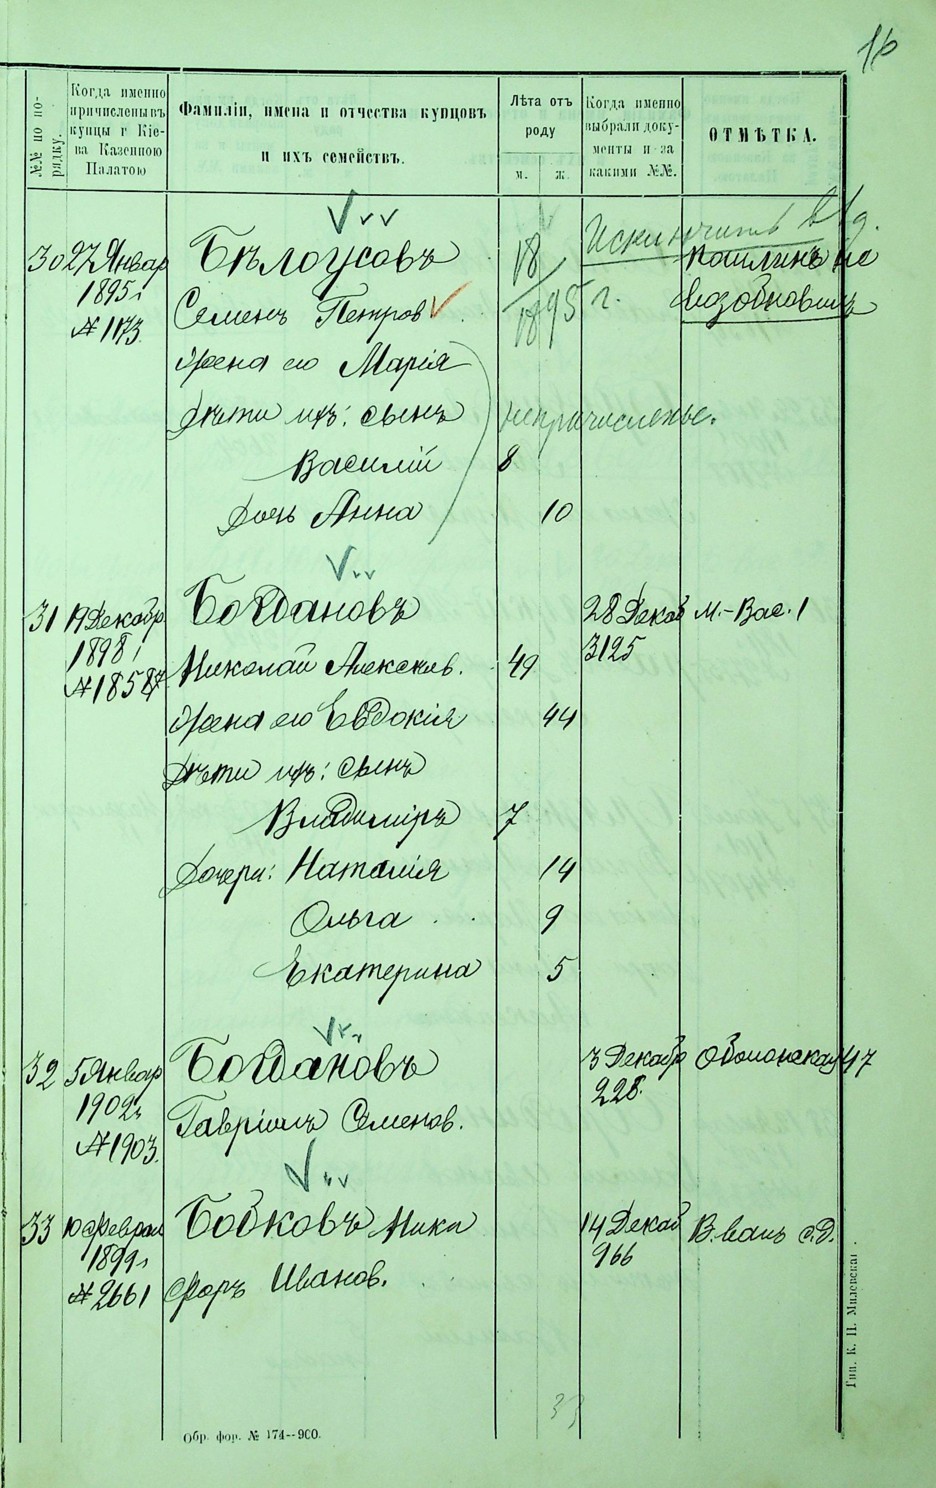 16
№№ по по-
рядку.
Когда именно
причислены въ
купцы г Кіе-
ва Казенною
Палатою
Фамиліи, имена и отчества купцовъ
и ихъ семействъ.
Лѣта отъ
роду
м. ж.
Когда именно
выбрали доку-
менты и за
какими №№.
ОТМѢТКА.
30 27 Январ Бѣлоусовъ
Исключить
пошлинъ не
1895 г
Семенъ Петров
1895 г.
возобновилъ
№ 1173.
Жена его Марія
Дѣти ихъ: сынъ
непричислены.
Василій 8
Дочь Анна 10
31 19 Декабр Богдановъ 28 Декаб М.-Вас. 1
1898 г
3125
№ 18587 Николай Алексѣев. 49
Жена его Евдокія 44
Дѣти ихъ: сынъ
Владиміръ 7
Дочери: Наталія 14
Ольга 9
Екатерина 5
32 5 Январ Богдановъ 3 Декабр Оболонская 47
1902 г
228.
№ 1903. Гавріилъ Семенов.
33 10 Феврал Бобковъ Ники 14 Декаб В. Валъ с.д.
1899 г
966
№ 2661 форъ Иванов.
33
Обр. фор. № 174—900.
Тип. К. Н. Милевскаг.